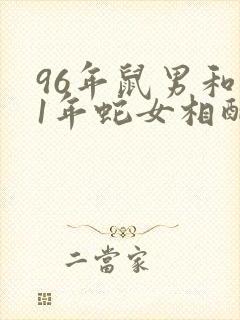 96年鼠男和
1年蛇女相配
二當家